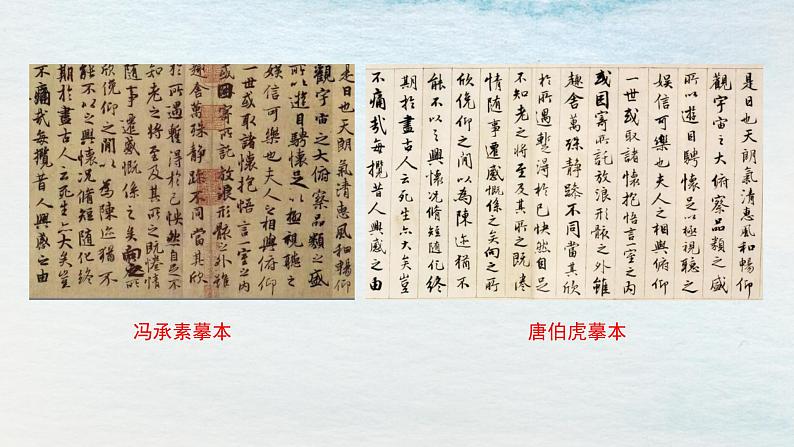 是日也天朗氣清惠風和暢仰
觀宇宙之大俯察品類之盛
所以遊目騁懷足以極視聽之
娛信可樂也夫人之相與俯仰
一世或取諸懷抱悟言一室之內
或因寄所託放浪形骸之外雖
趣舍萬殊靜躁不同當其欣
於所遇暫得於己快然自足不
知老之將至及其所之既惓情
隨事遷感慨係之矣向之所
欣俛仰之間以為陳迹猶不
能不以之興懷況脩短隨化終
期於盡古人云死生亦大矣豈
不痛哉每攬昔人興感之由
冯承素摹本
是日也天朗氣清惠風和暢仰
觀宇宙之大俯察品類之盛
所以遊目騁懷足以極視聽之
娛信可樂也夫人之相與俯仰
一世或取諸懷抱悟言一室之內
或因寄所託放浪形骸之外雖
趣舍萬殊靜躁不同當其欣
於所遇暫得於己快然自足
不知老之將至及其所之既惓
情隨事遷感慨係之矣向之所
欣俛仰之間以為陳迹猶不
能不以之興懷況脩短隨化終
期於盡古人云死生亦大矣豈
不痛哉每攬昔人興感之由
唐伯虎摹本